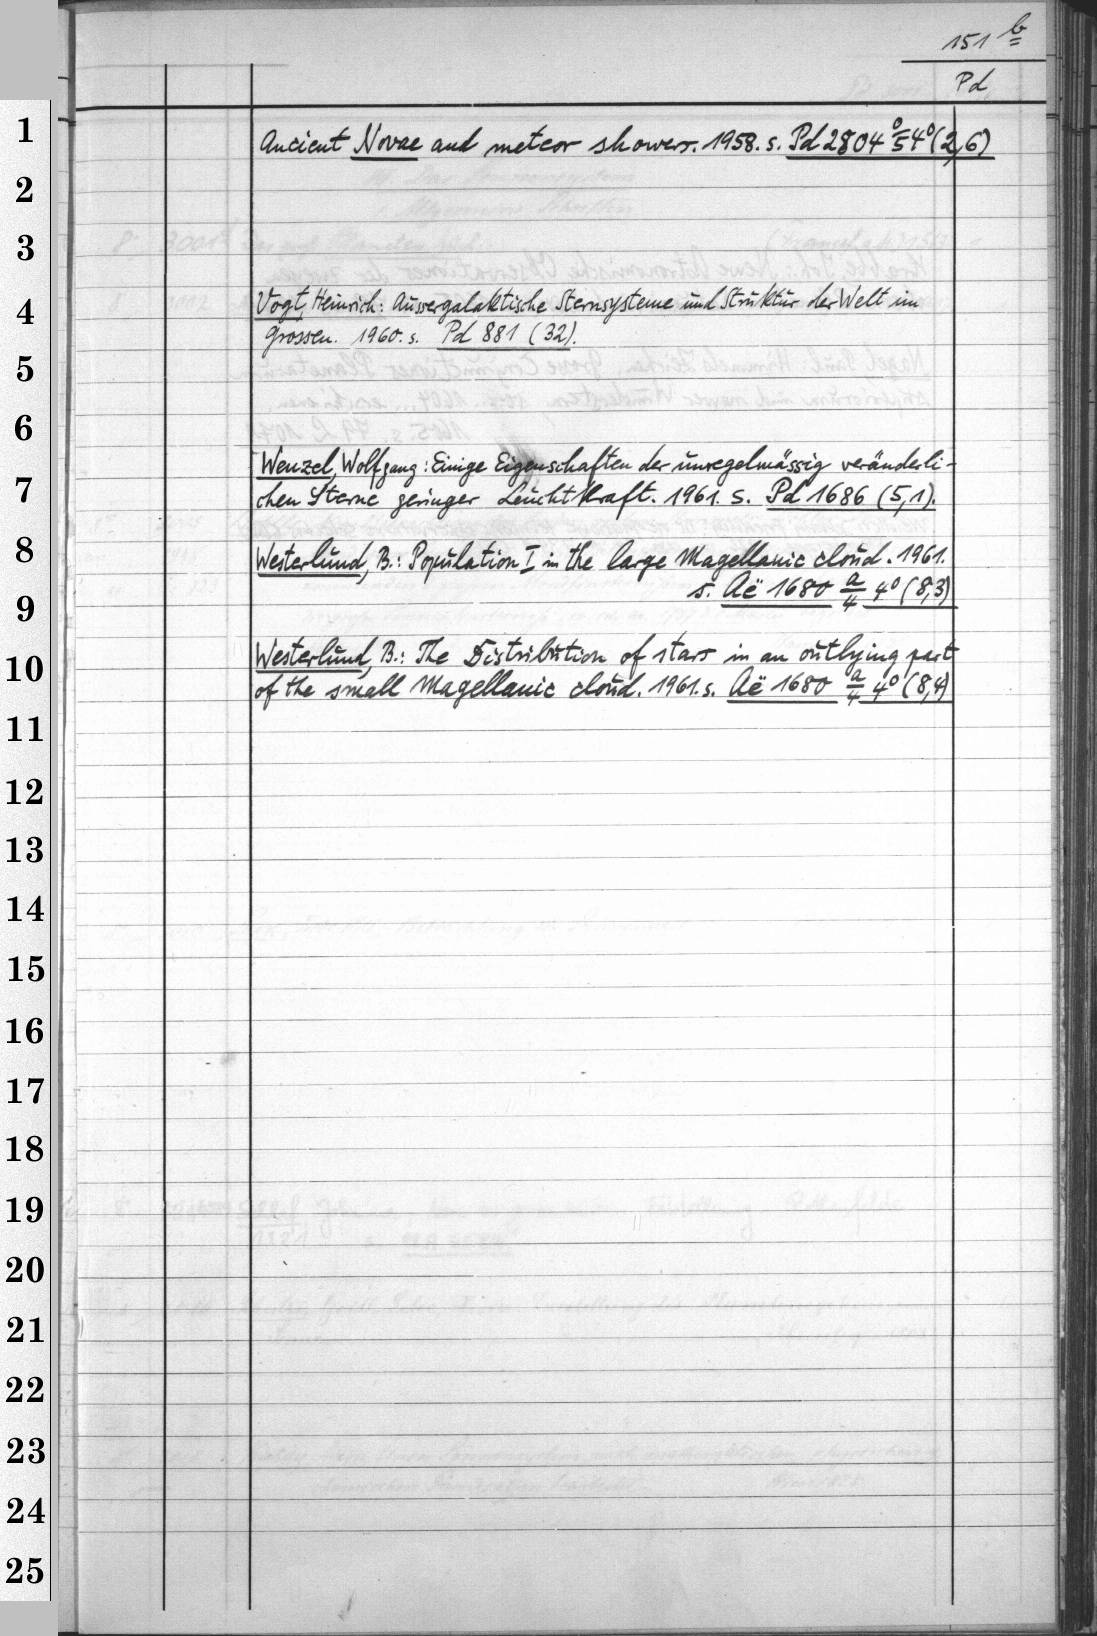 151 b
Pd
Ancient Novae and meteor showers. 1958. s. Pd 2804 0/5 4° (2,6)
Vogt, Heinrich: Aussergalaktische Sternsysteme und Struktur der Welt im
Grossen. 1960. s. Pd 881 (32).
Wenzel, Wolfgang: Einige Eigenschaften der unregelmässig veränderli-
chen Sterne geringer Leuchtkraft. 1961. s. Pd 1686 (5,1).
Westerlund, B.: Population I in the large Magellanic cloud. 1961.
s. Aë 1680 a/4 4° (8,3)
Westerlund, B.: The Distribution of stars in an outlying part
of the small Magellanic cloud. 1961. s. Aë 1680 a/4 4° (8,4)
1
2
3
4
5
6
7
8
9
10
11
12
13
14
15
16
17
18
19
20
21
22
23
24
25